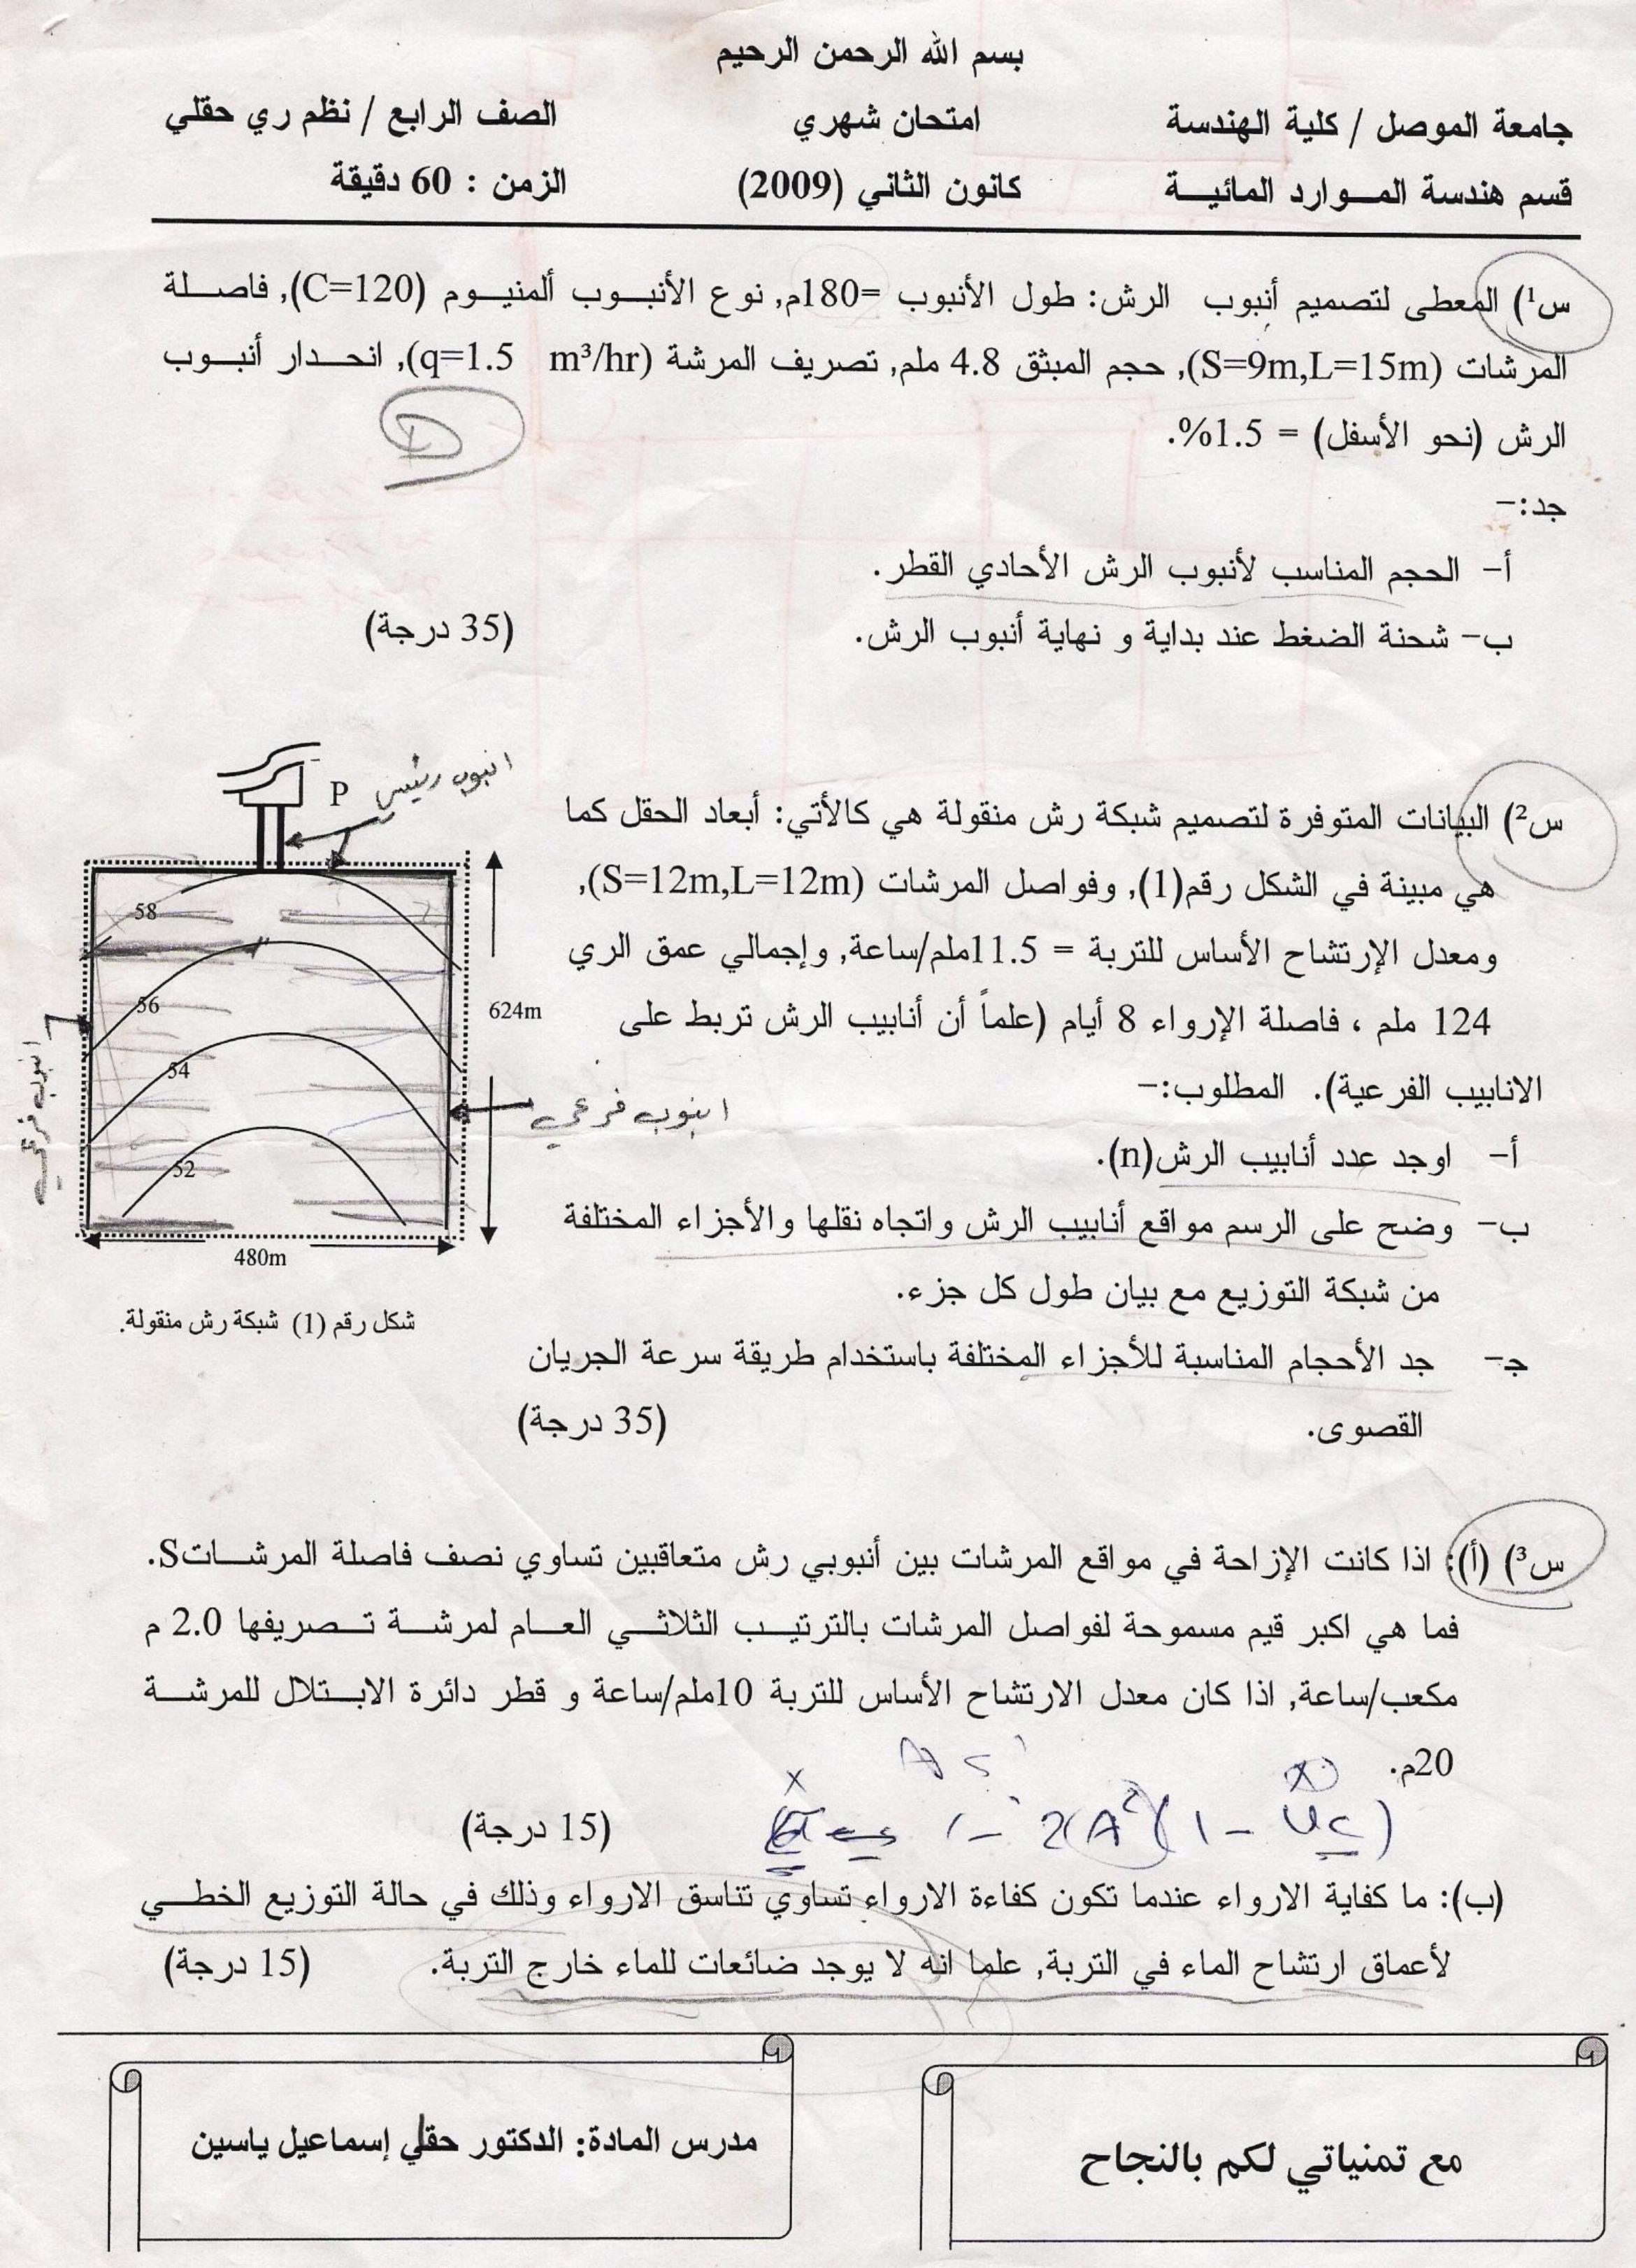 بسم الله الرحمن الرحيم
جامعة الموصل / كلية الهندسة امتحان شهري الصف الرابع / نظم ري حقلي
قسم هندسة المـــوارد المائيــة كانون الثاني (2009) الزمن : 60 دقيقة
س1) المعطى لتصميم أنبوب الرش: طول الأنبوب =180م, نوع الأنبــوب ألمنيــوم (C=120), فاصـــلة
المرشات (S=9m,L=15m), حجم المبثق 4.8 ملم, تصريف المرشة (q=1.5 m³/hr), انحــدار أنبــوب
الرش (نحو الأسفل) = 1.5%.
D
جد:-
أ- الحجم المناسب لأنبوب الرش الأحادي القطر.
ب- شحنة الضغط عند بداية و نهاية أنبوب الرش.
(35 درجة)
س2) البيانات المتوفرة لتصميم شبكة رش منقولة هي كالأتي: أبعاد الحقل كما
هي مبينة في الشكل رقم(1), وفواصل المرشات (S=12m,L=12m),
ومعدل الإرتشاح الأساس للتربة = 11.5ملم/ساعة, وإجمالي عمق الري
124 ملم ، فاصلة الإرواء 8 أيام (علماً أن أنابيب الرش تربط على
الانابيب الفرعية). المطلوب:-
أ- اوجد عدد أنابيب الرش(n).
ب- وضح على الرسم مواقع أنابيب الرش واتجاه نقلها والأجزاء المختلفة
من شبكة التوزيع مع بيان طول كل جزء.
ج- جد الأحجام المناسبة للأجزاء المختلفة باستخدام طريقة سرعة الجريان
القصوى.
(35 درجة)
P
انبوب رئيس
58
56
54
52
624m
480m
انبوب فرعي
انبوب فرعي
شكل رقم (1) شبكة رش منقولة.
س3) (أ): اذا كانت الإزاحة في مواقع المرشات بين أنبوبي رش متعاقبين تساوي نصف فاصلة المرشــاتS.
فما هي اكبر قيم مسموحة لفواصل المرشات بالترتيــب الثلاثــي العــام لمرشــة تــصريفها 2.0 م
مكعب/ساعة, اذا كان معدل الارتشاح الأساس للتربة 10ملم/ساعة و قطر دائرة الابــتلال للمرشــة
20م.
1 - 2(A²)(1 - Uc)
(15 درجة)
(ب): ما كفاية الارواء عندما تكون كفاءة الارواء تساوي تناسق الارواء وذلك في حالة التوزيع الخطــي
لأعماق ارتشاح الماء في التربة, علما انه لا يوجد ضائعات للماء خارج التربة.
(15 درجة)
مع تمنياتي لكم بالنجاح
مدرس المادة: الدكتور حقي إسماعيل ياسين